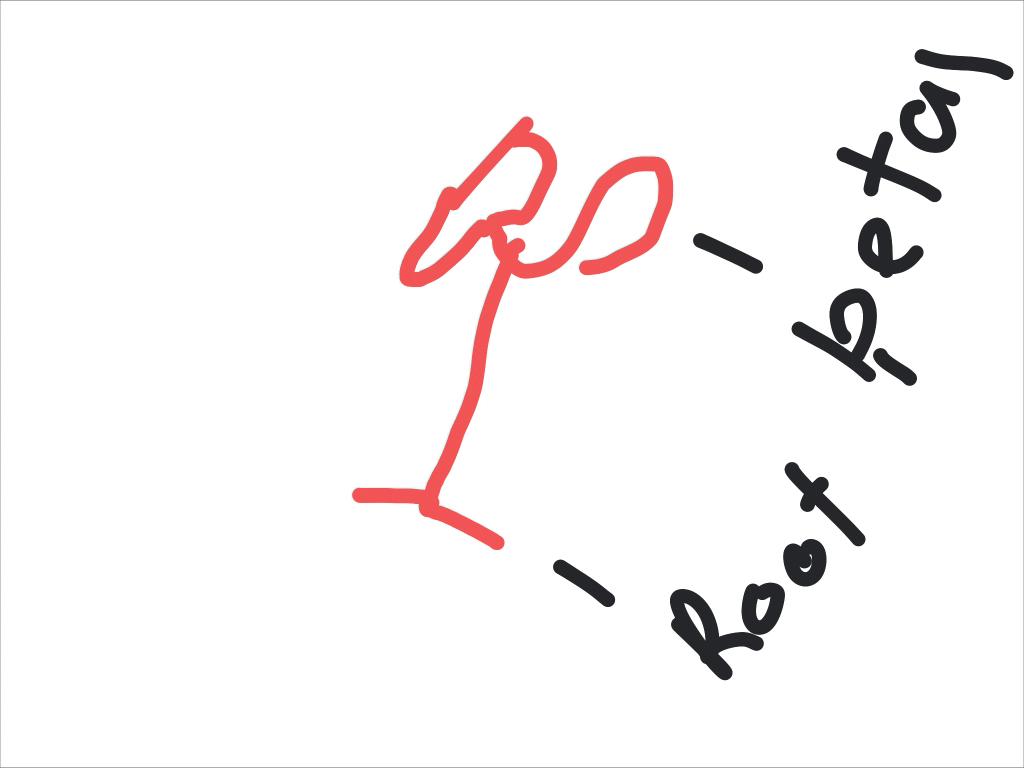 petal
Root